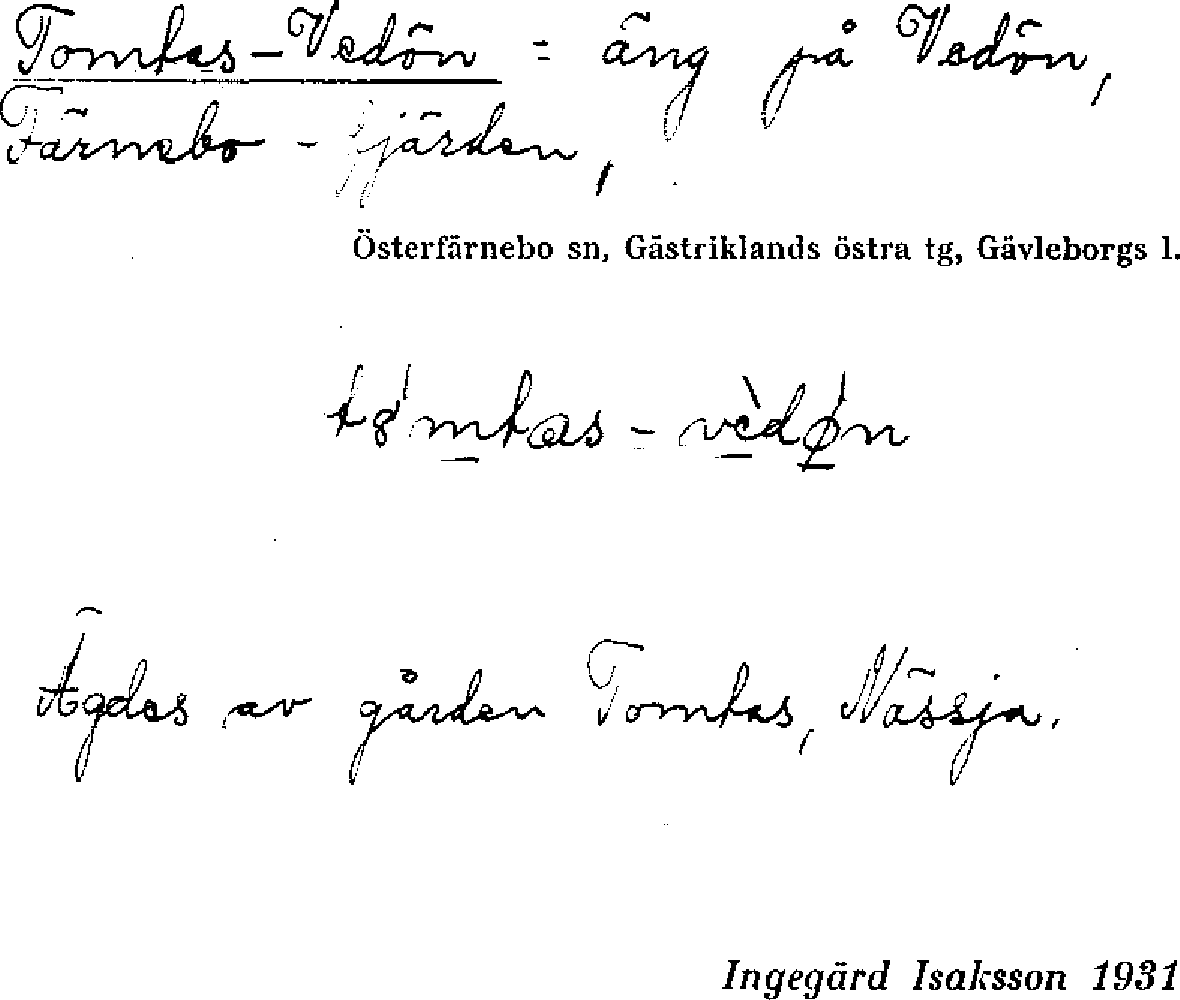 Tomtas-Vedön = äng på Vedön,
Färnebo-fjärden,
Österfärnebo sn, Gästriklands östra tg, Gävleborgs l.
Ägdes av gården Tomtas, Nässja.
Ingegärd Isaksson 1931